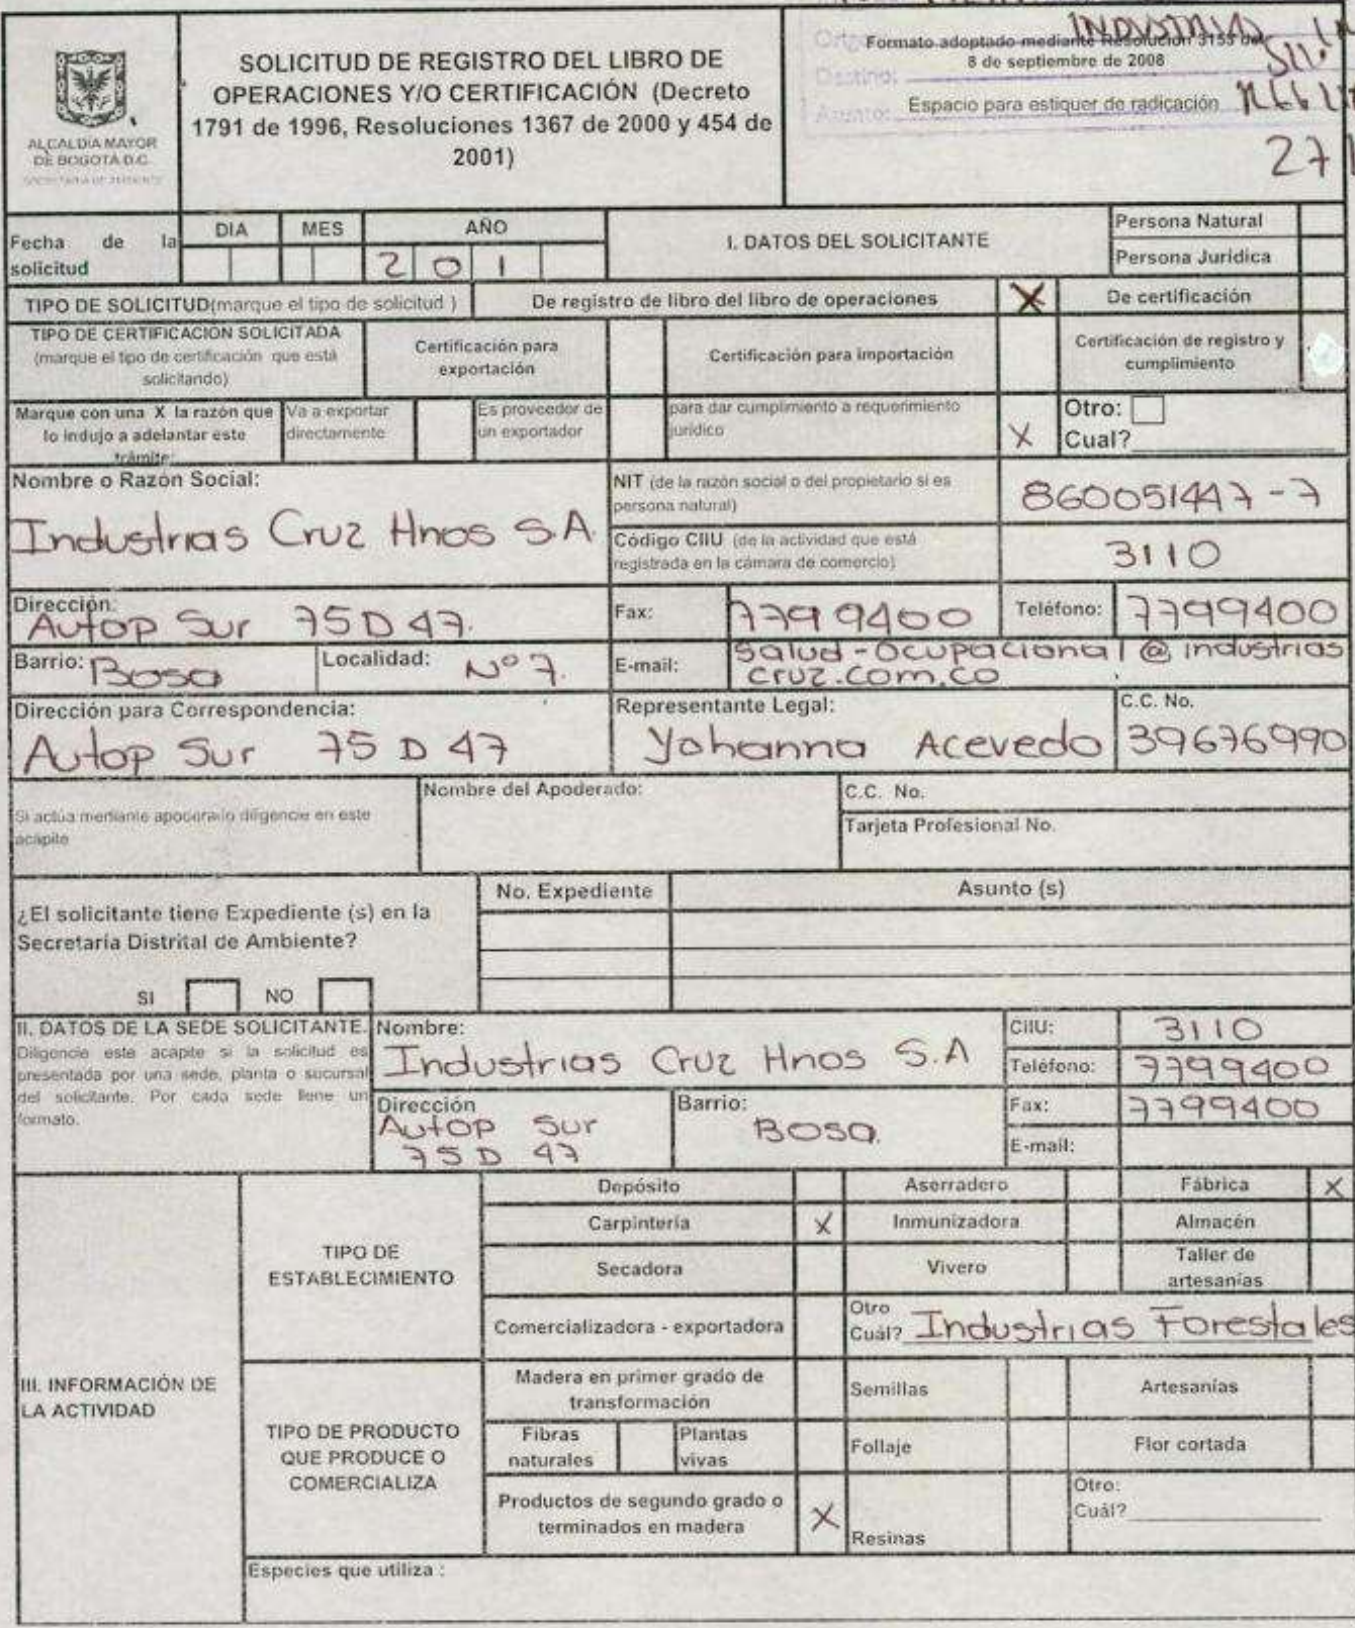 INDUSTRIAS
Formato adoptado mediante Resolución 3155 de
8 de septiembre de 2008
Destino:
Asunto:
Espacio para estiquer de radicación
27
ALCALDIA MAYOR
DE BOGOTÁ D.C.
SECRETARIA DE AMBIENTE
SOLICITUD DE REGISTRO DEL LIBRO DE
OPERACIONES Y/O CERTIFICACIÓN (Decreto
1791 de 1996, Resoluciones 1367 de 2000 y 454 de
2001)
Fecha de la
solicitud
DIA MES AÑO
2 0 1
I. DATOS DEL SOLICITANTE
Persona Natural
Persona Juridica
TIPO DE SOLICITUD(marque el tipo de solicitud )
De registro de libro del libro de operaciones X
De certificación
TIPO DE CERTIFICACION SOLICITADA
(marque el tipo de certificación que está
solicitando)
Certificación para
exportación
Certificación para importación
Certificación de registro y
cumplimiento
Marque con una X la razón que
lo indujo a adelantar este
trámite:
Va a exportar
directamente
Es proveedor de
un exportador
para dar cumplimiento a requerimiento
jurídico
X
Otro:
Cual?
Nombre o Razón Social:
Industrias Cruz Hnos S.A.
NIT (de la razón social o del propietario si es
persona natural)
860051447-7
Código CIIU (de la actividad que está
registrada en la cámara de comercio)
3110
Dirección:
Autop Sur 75D 47.
Fax: 7799400
Teléfono: 7799400
Barrio: Bosa
Localidad: N° 7.
E-mail: Salud-Ocupacional@industrias
cruz.com.co
Dirección para Correspondencia:
Autop Sur 75 D 47
Representante Legal:
Yohanna Acevedo
C.C. No.
39676990
Si actúa mediante apoderado diligencie en este
acápite
Nombre del Apoderado:
C.C. No.
Tarjeta Profesional No.
¿El solicitante tiene Expediente (s) en la
Secretaría Distrital de Ambiente?
SI NO
No. Expediente
Asunto (s)
II. DATOS DE LA SEDE SOLICITANTE.
Diligencie este acápite si la solicitud es
presentada por una sede, planta o sucursal
del solicitante. Por cada sede llene un
formato.
Nombre:
Industrias Cruz Hnos S.A
CIIU: 3110
Teléfono: 7799400
Dirección
Autop Sur
75 D 47
Barrio:
Bosa.
Fax: 7799400
E-mail:
III. INFORMACIÓN DE
LA ACTIVIDAD
TIPO DE
ESTABLECIMIENTO
Depósito
Aserradero
Fábrica X
Carpintería X
Inmunizadora
Almacén
Secadora
Vivero
Taller de
artesanías
Comercializadora - exportadora
Otro
Cuál? Industrias Forestales
TIPO DE PRODUCTO
QUE PRODUCE O
COMERCIALIZA
Madera en primer grado de
transformación
Semillas
Artesanías
Fibras
naturales
Plantas
vivas
Follaje
Flor cortada
Productos de segundo grado o
terminados en madera
X
Resinas
Otro:
Cuál?
Especies que utiliza :